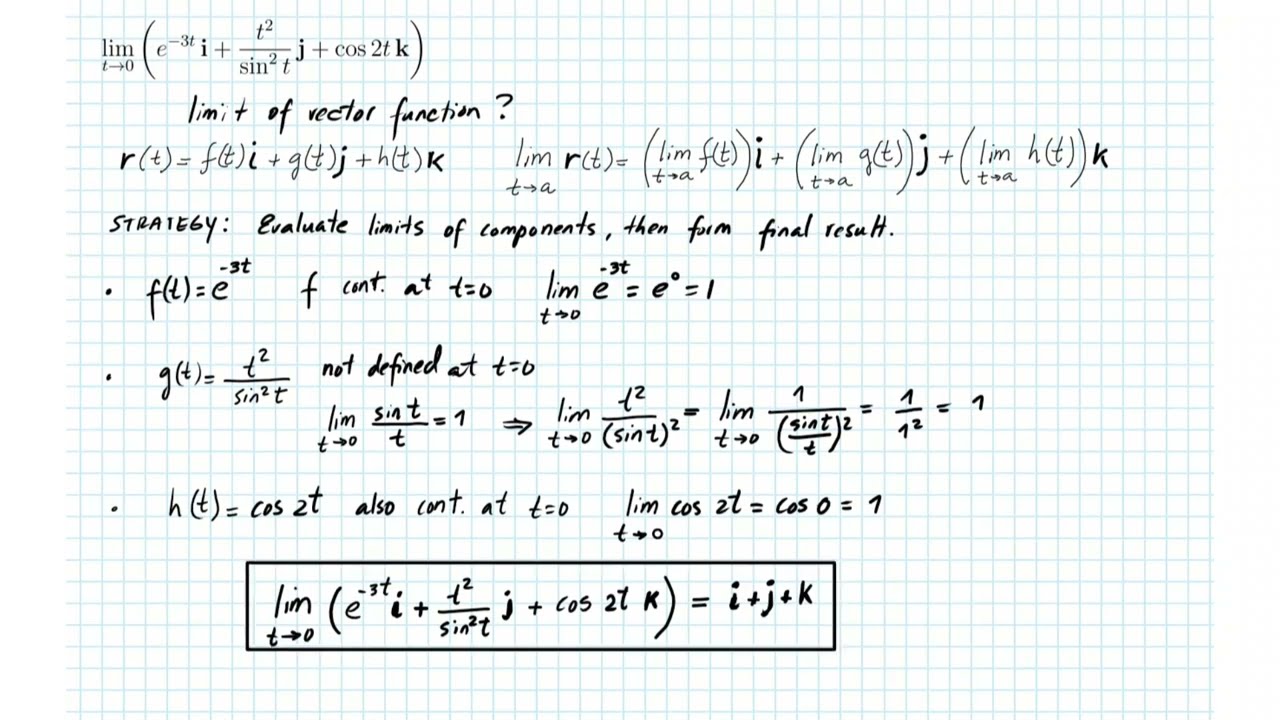 lim t→0 (e^{-3t} i + t²/sin² t j + cos 2t k)
limit of vector function?
r(t) = f(t)i + g(t)j + h(t)k   lim t→a r(t) = (lim t→a f(t))i + (lim t→a g(t))j + (lim t→a h(t))k
STRATEGY: Evaluate limits of components, then form final result.
• f(t) = e^{-3t}   f cont. at t=0   lim t→0 e^{-3t} = e⁰ = 1
• g(t) = t²/sin² t   not defined at t=0
lim t→0 sin t/t = 1 ⇒ lim t→0 t²/(sin t)² = lim t→0 1/(sin t/t)² = 1/1² = 1
• h(t) = cos 2t   also cont. at t=0   lim t→0 cos 2t = cos 0 = 1
lim t→0 (e^{-3t} i + t²/sin² t j + cos 2t k) = i + j + k